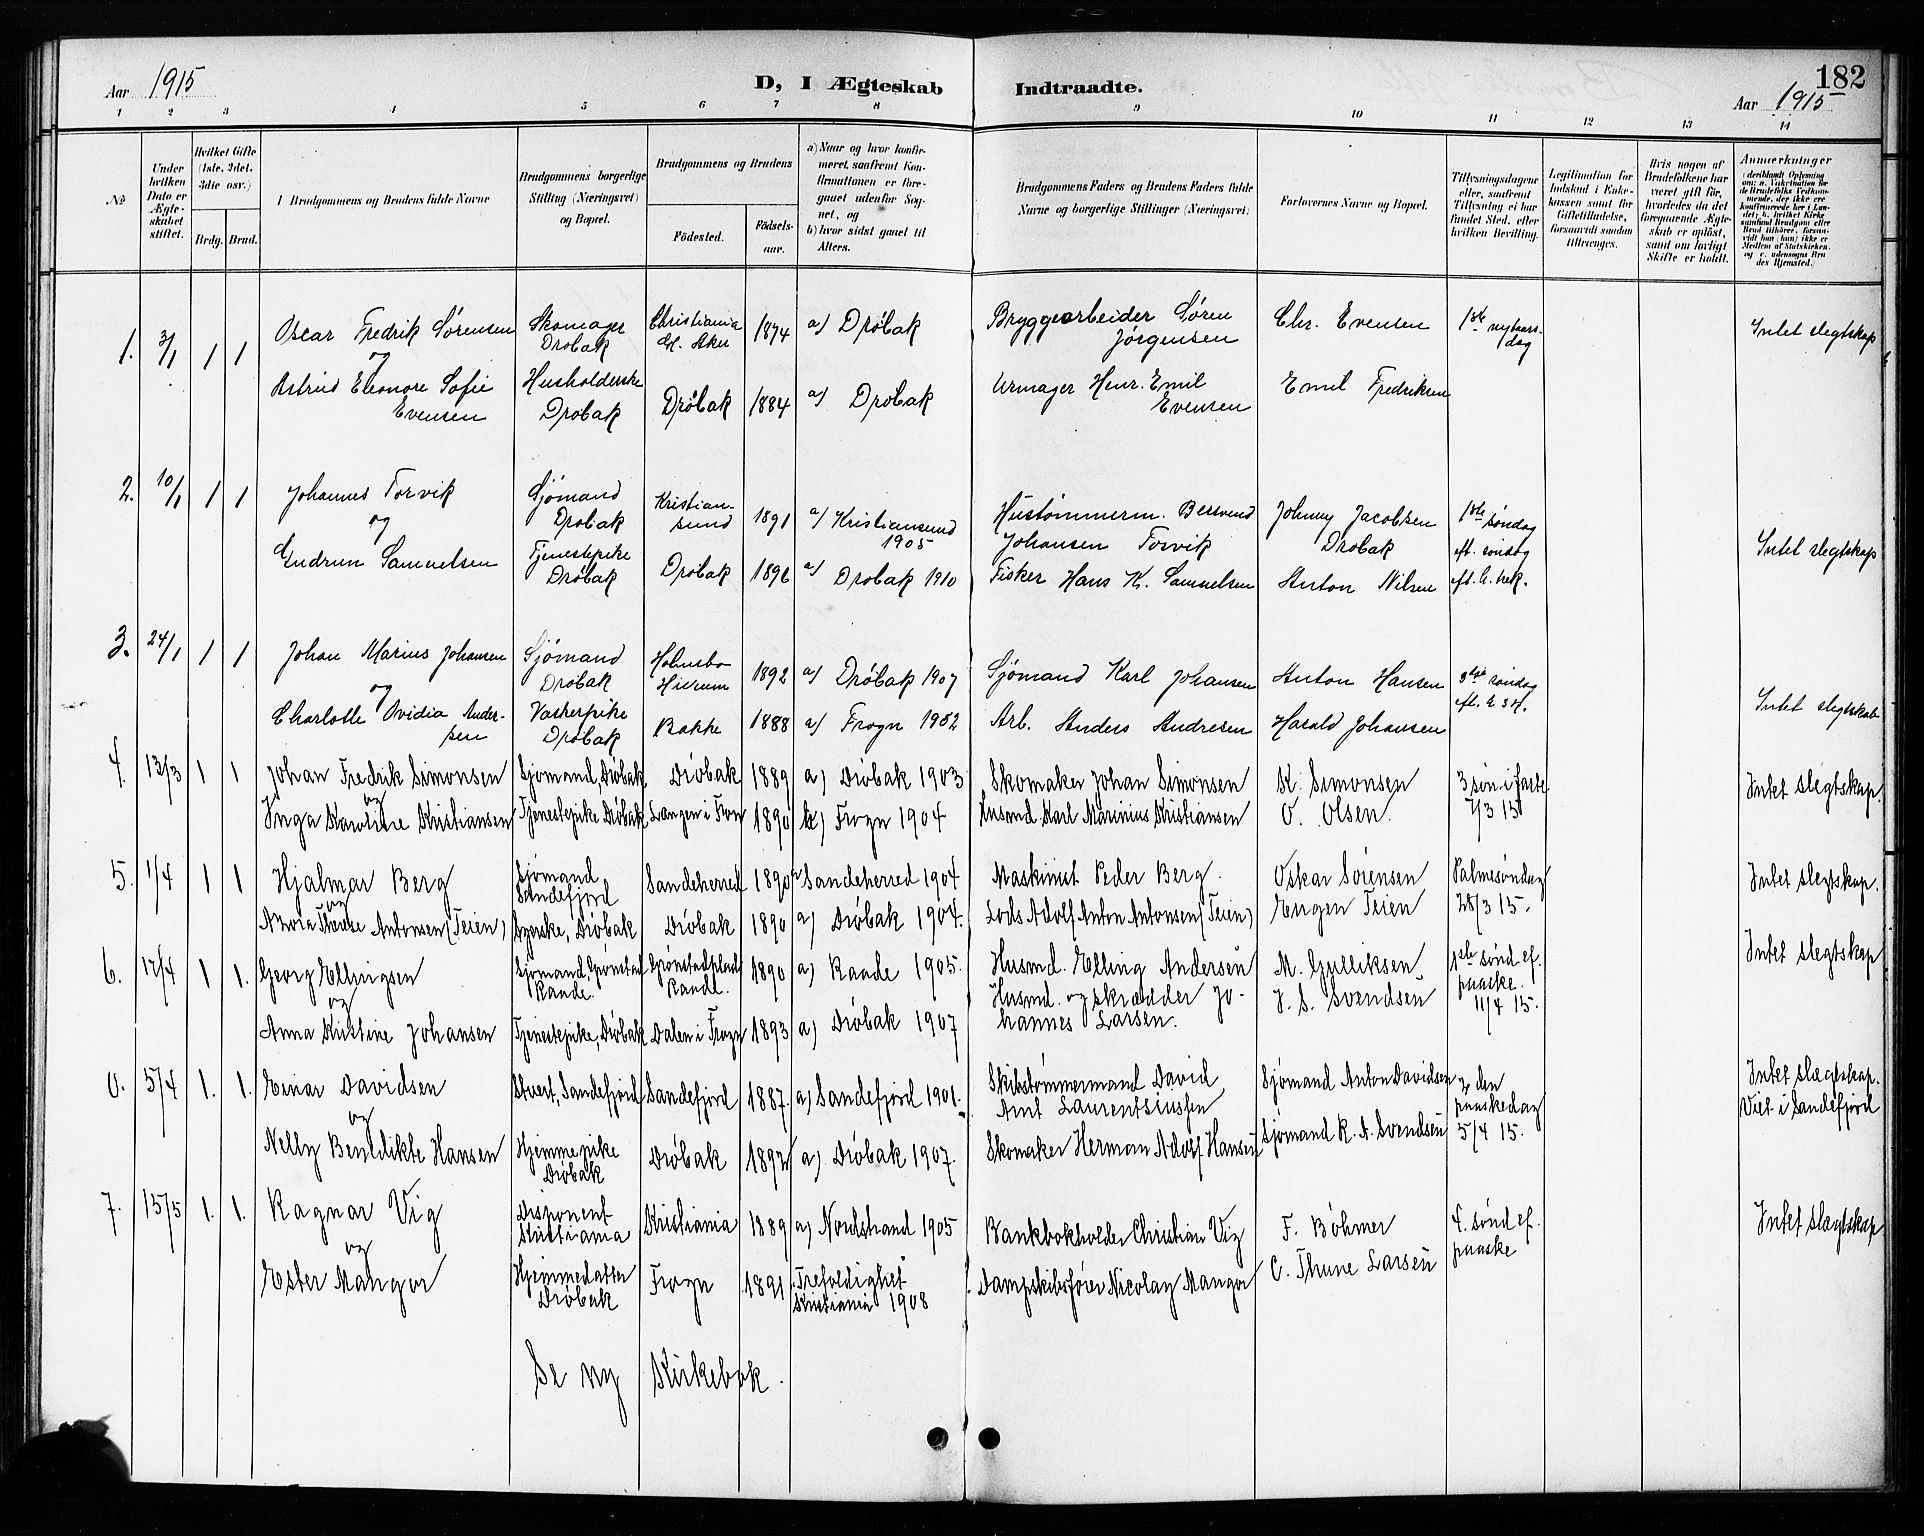 Aar 1915
D, I Ægteskab
Indtraadte.
182
Aar 1915
1 2 3 4 5 6 7 8 9 10 11 12 13 14
№
Under hvilken Dato er Ægteskabet stiftet.
Hvilket Gifte (1ste, 2det, 3die osv.)
Brdg. Brud.
1 Brudgommens og Brudens fulde Navne
Brudgommens borgerlige Stilling (Næringsvei) og Bopæl.
Brudgommens og Brudens
Fødested.
Fødselsaar.
a) Naar og hvor konfirmeret, saafremt Konfirmationen er foregaaet udenfor Sognet, og
b) hvor sidst gaaet til Alters.
Brudgommens Faders og Brudens Faders fulde Navne og borgerlige Stillinger (Næringsvei)
Forlovernes Navne og Bopæl.
Tillysningsdagene eller, saafremt Tillysning ei har fundet Sted, efter hvilken Bevilling.
Legitimation for Indskud i Enkekassen samt for Giftetilladelse, forsaavidt saadan tiltrænges.
Hvis nogen af Brudefolkene har været gift før, hvorledes da det foregaaende Ægteskab er opløst, samt om lovligt Skifte er holdt.
Anmerkninger
1. 3/1 1 1 Oscar Fredrik Sørensen Skomager Drøbak Christiania Gl. Aker 1874 a) Drøbak Bryggearbeider Søren Jørgensen Chr. Evensen 1ste nytaarsdag Intet slegtskap
og
Astrid Eleonore Sofie Evensen Husholderske Drøbak Drøbak 1884 a) Drøbak Urmager Henr. Emil Evensen Emil Fredriksen
2. 10/1 1 1 Johannes Torvik Sjømand Drøbak Kristiansund 1891 a) Kristiansund 1905 Hustømmerm. Johansen Torvik Johnny Jacobsen Drøbak 1ste søndag eft. søndag eft. h. trek. Intet slegtskap
og
Gudrun Samuelsen Tjenestepike Drøbak Drøbak 1896 a) Drøbak 1910 Fisker Hans K. Samuelsen Anton Nilsen
3. 24/1 1 1 Johan Marius Johansen Sjømand Drøbak Holmsbo Hurum 1892 a) Drøbak 1907 Sjømand Karl Johansen Anton Hansen søndag eft. h. 3 k. Intet slegtskab
og
Charlotte Ovidia Andersen Vaskerpike Drøbak Bakke 1888 a) Frogn 1902 Arb. Anders Andresen Harald Johansen
4. 13/3 1 1 Johan Fredrik Simonsen Sjømand, Drøbak Drøbak 1889 a) Drøbak 1903 Skomaker Johan Simonsen K. Simonsen 3 søn i faste 7/3 15 Intet slegtskap.
og
Inga Karoline Kristiansen Tjenestepike Drøbak Langen i Frogn 1890 a) Frogn 1904 Husmd Karl Marinius Kristiansen O. Olsen.
5. 1/4 1 1 Hjalmar Berg Sjømand Sandefjord Sandeherred 1890 a) Sandeherred 1904 Maskinist Peder Berg. Oskar Sørensen Palmesøndag 28/3 15. Intet slegtskap.
og
Azora Therese Antonsen (Teien) Syerske, Drøbak Drøbak 1890 a) Drøbak 1904. Lods Adolf Anton Antonsen (Teien) Eugen Teien
6. 17/4 1 1. Georg Ellingsen Sjømand Grønstad Raade. Grønstadplads Raade. 1890 a) Raade 1905. Husmd. Elling Andersen M. Gulliksen 1ste sønd ef. paaske. 11/4 15. Intet slegtskap
og
Anna Kristine Johansen Tjenestepike, Drøbak Dalen i Frogn 1893 a) Drøbak 1907 Husmd. og skrædder Johannes Larsen. J. S. Svendsen
0. 5/4 1. 1. Einar Davidsen Stuert, Sandefjord Sandefjord 1887. a) Sandefjord 1901. Skibstømmermand David Arnt Laurentsiussen Sjømand Anton Davidsen 2 den paaskedag 5/4 15. Intet slægtskap. Viet i Sandefjord
og
Nelly Bendikte Hansen Hjemmepike Drøbak Drøbak 1892 a) Drøbak 1907. Skomaker Herman Adolf Hansen Sjømand K. A. Svendsen
7. 15/5 1. 1. Ragnar Vig Disponent Kristiania Kristiania 1889 a) Nordstrand 1905 Bankbokholder Christian Vig F. Bøhmer 4. sønd ef. paaske Intet slægtskap
og
Ester Mangor Hjemmedatter Drøbak Frogn 1891 Trefoldighet Kristiania 1908 Dampskibsfører Nicolay Mangor C. Thune Larsen
Se ny Kirkebok.